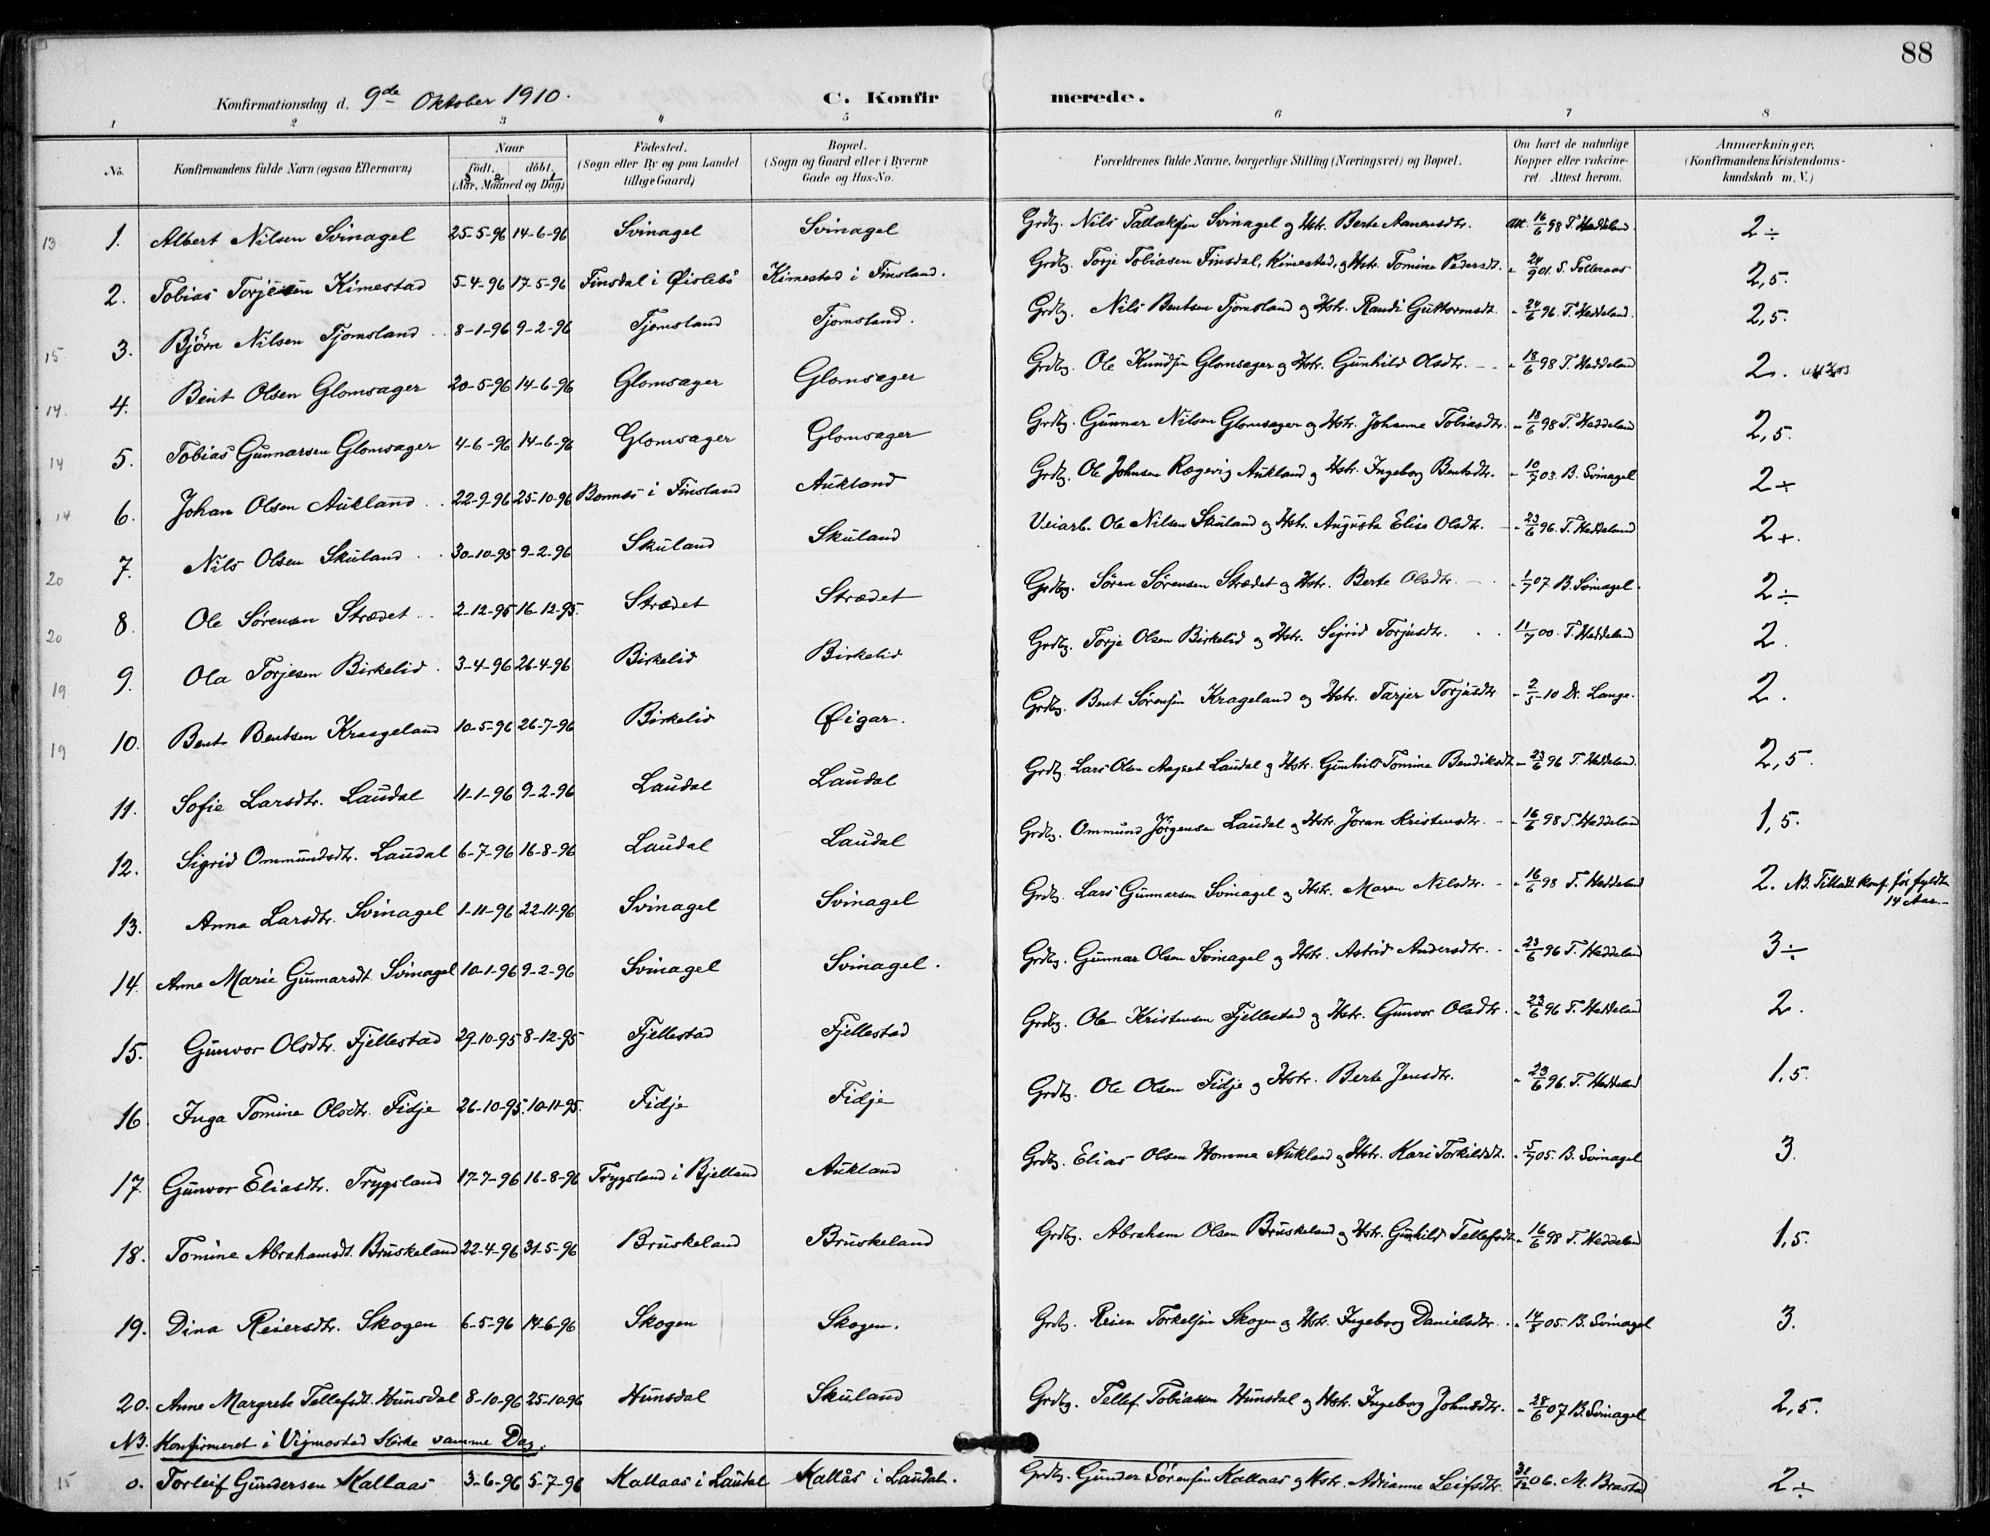 88
Konfirmationsdag d. 9de Oktober 1910. C. Konfirmerede.
1 2 3 4 5 6 7 8
No. Konfirmandens fulde Navn (ogsaa Efternavn) Naar födt, döbt, (Aar, Maaned og Dag) Födested. (Sogn eller By og paa Landet tillige Gaard) Bopæl. (Sogn og Gaard eller i Byerne Gade og Hus-No. Forældrenes fulde Navne, borgerlige Stilling (Næringsvei) og Bopæl. Om havt de naturlige Kopper eller vakcineret Attest herom. Anmærkninger. (Konfirmandens Kristendomskundskab m. V.)
13 1. Albert Nilsen Svinagel 25-5-96 14-6-96 Svinagel Svinagel Grdbg. Nils Tallaksen Svinagel og Hstr. Berte Aanensdtr. Att. 16/6 98 T. Heddeland 2÷
2. Tobias Torjesen Kimestad 5-4-96 17-5-96 Finsdal i Øislebö Kimestad i Finsland. Grdbg. Torje Tobiasen Finsdal, Kimestad, og Hstr. Tomine Pedersdt. - 24/9 01. S. Folleraas 2,5.
3. Björn Nilsen Tjomsland 8-1-96 9-2-96 Tjomsland Tjomsland. Grdbg. Nils Bentsen Tjomsland og Hstr. Randi Guttormsdt. - 24/6 96. T. Heddeland. 2,5.
15 4. Bent Olsen Glomsager 20-5-96 14-6-96 Glomsager Glomsager Grdbg. Ole Knudsen Glomsager og Hstr. Gunhild Olsdtr. - 18/6 98 T. Heddeland 2.
14. 5. Tobias Gunnarsen Glomsager 4-6-96 14-6-96 Glomsager Glomsager Grdbg. Gunnar Nilsen Glomsager og Hstr. Johanne Tobiasdtr. - 18/6 98 T. Heddeland 2,5.
14 6. Johan Olsen Aukland 22-9-96 25-10-96 Bonnes i Finsland Aukland Grdbg. Ole Johnsen Rægevig Aukland og Hstr. Ingeborg Bentsdtr. - 10/7 03. B. Svinagel 2÷
14 7. Nils Olsen Skuland 30-10-95 9-2-96 Skuland Skuland Veiarb. Ole Nilsen Skuland og Hstr. Augusta Elise Olsdtr. - 23/6 96. T. Heddeland 2+.
20 8. Ole Sörensen Strædet 2-12-95 16-12-95. Strædet Strædet Grdbg. Sören Sörensen Strædet og Hstr. Berte Olsdtr. - 1/7 07 B. Svinagel. 2÷
20 9. Ola Torjesen Birkelid 3-4-96 26-4-96 Birkelid Birkelid Grdbg. Torje Olsen Birkelid og Hstr. Sigrid Torjusdtr. 11/7 00. T. Heddeland 2.
19 10. Bent Bentsen Kraageland 10-5-96 26-7-96 Birkelid Øigar. Grdbg. Bent Sörensen Krageland og Hstr. Tarjer Torjusdtr - 2/5-10 Dr. Lange. 2.
19 11. Sofie Larsdtr. Laudal 11-1-96 9-2-96 Laudal Laudal Grdbg. Lars Olsen Aagset Laudal og Hstr. Gunhild Tomine Bendiksdt - 23/6 96 T. Heddeland. 2,5.
12. Sigrid Ommundsdtr. Laudal 6-7-96 16-8-96 Laudal Laudal Grdbg. Ommund Jörgensen Laudal og Hstr. Joran Kristensdtr. - 16/6 98 T. Heddeland 1,5.
13. Anna Larsdtr. Svinagel 1-11-96 22-11-96 Svinagel Svinagel Grdbg. Lars Gunnarsen Svinagel og Hstr. Maren Nilsdtr. - 16/6 98 T. Heddeland 2. NB. Tilladt konf. för fyldte 14 Aar.
14. Anne Marie Gunnarsdt. Svinagel 10-1-96 9-2-96 Svinagel Svinagel. Grdbg. Gunnar Olsen Svinagel og Hstr. Astrid Andersdtr. - 23/6 96 T. Heddeland 3÷
15. Gunvor Olsdtr. Fjellestad 29-10-95 8-12-95 Fjellestad Fjellestad Grdbg. Ole Kristensen Fjellestad og Hstr. Gunvor Olsdtr. - 23/6 96 T. Heddeland 2.
16 Inga Tomine Olsdtr. Fidje 26-10-95. 10-11-95. Fidje Fidje Grdbg. Ole Olsen Fidje og Hstr. Berte Jensdtr. - 23/6 96. T. Heddeland 1,5.
17. Gunvor Eliasdtr. Trygsland 17-7-96 16-8-96 Trygsland i Bjelland Aukland Grdbg. Elias Olsen Homme Aukland og Hstr. Kari Torkildsdt. - 5/7 05. B. Svinagel 3.
18. Tomine Abrahamsdt. Bruskeland 22-4-96 31-5-96 Bruskeland Bruskeland Grdbg. Abraham Olsen Bruskeland og Hstr. Gunhild Tellefsdt - 16/6 98 T. Heddeland 1,5.
19. Dina Reiersdtr. Skogen 6-5-96 14-6-96 Skogen Skogen. Grdbg. Reier Torkelsen Skogen og Hstr. Ingeborg Danielsdtr. 05. B. Svinagel 3.
20. Anne Margrete Tellefsdt. Hunsdal 8-10-96 25-10-96 Hunsdal Skuland Grdbg. Tellef Tobiassen Hunsdal og Hstr. Ingeborg Johnsdtr. - 28/6 07 B. Svinagel 2,5.
NB. Konfirmeret i Vigmostad Kirke samme Dag.
15 0. Torleif Gundersen Kallaas 3-6-96 5-7-96 Kallaas i Laudal Kallås i Laudal. Grdbg. Gunder Sörensen Kallaas og Hstr. Adrianne Leifsdtr. 31/12 06. M. Brastad 2÷